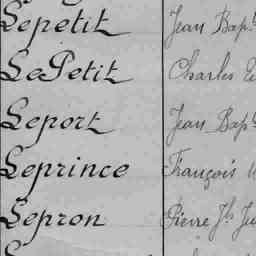 Lepetit Jean Bap.t
LePetit Charles
Leport Jean Bap.t
Leprince François
Lepron Pierre Jh